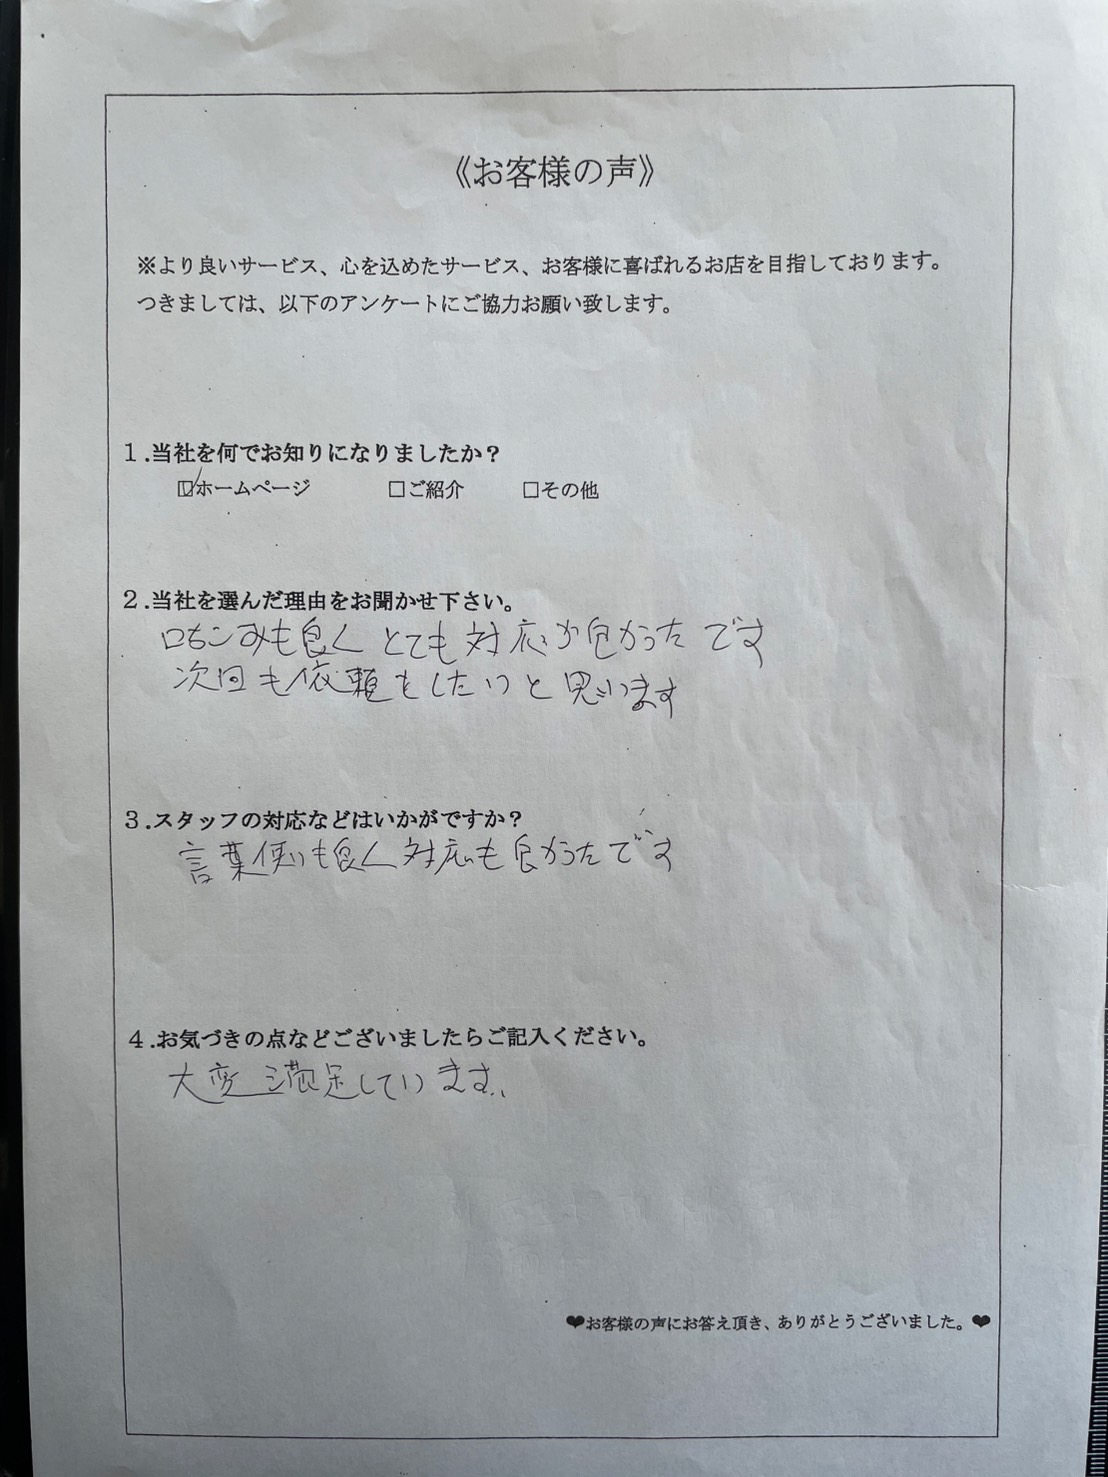 《お客様の声》
※より良いサービス、心を込めたサービス、お客様に喜ばれるお店を目指しております。
つきましては、以下のアンケートにご協力お願い致します。
１.当社を何でお知りになりましたか？
☑ホームページ □ご紹介 □その他
２.当社を選んだ理由をお聞かせ下さい。
口もコみも良く とても対応が良かったです
次回も依頼をしたいと思います
３.スタッフの対応などはいかがですか？
言葉使いも良く対応も良かったです
４.お気づきの点などございましたらご記入ください。
大変満足しています。
❤お客様の声にお答え頂き、ありがとうございました。❤